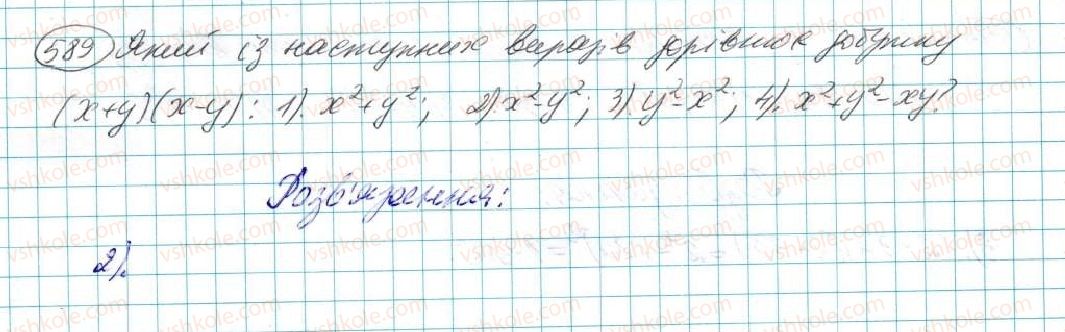 589 Який із наступних виразів дорівнює добутку
(x+y)(x-y): 1). x²+y²; 2). x²-y²; 3). y²-x²; 4). x²+y²-xy?
Розв'язання:
2).